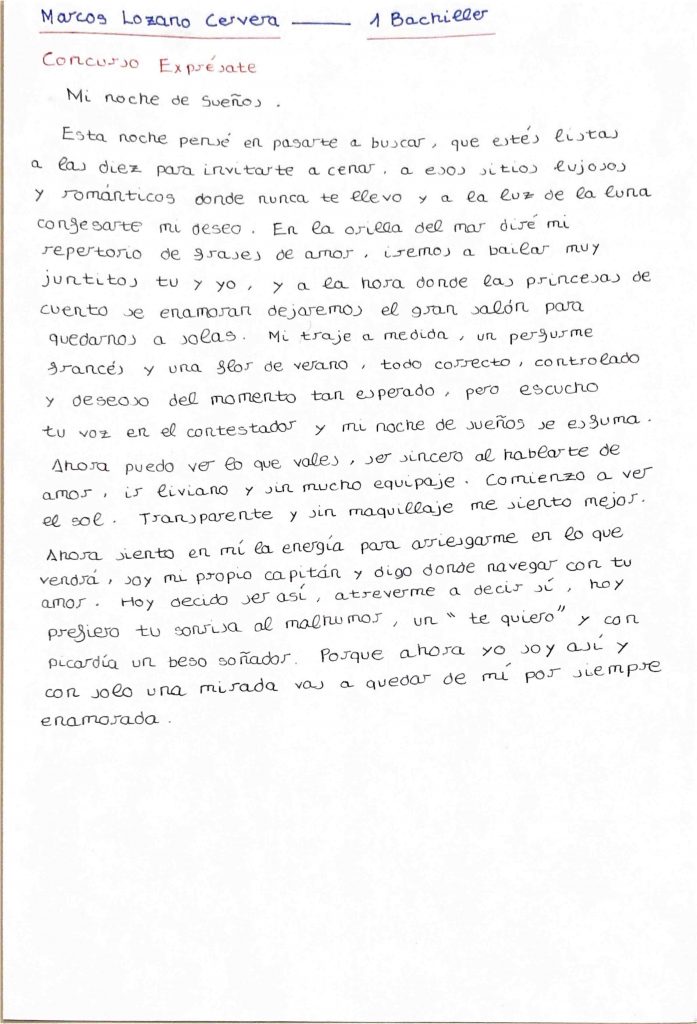 Marcos Lozano Cervera —— 1 Bachiller
Concurso Exprésate
Mi noche de sueños.
Esta noche pensé en pasarte a buscar, que estés listas
a las diez para invitarte a cenar, a esos sitios lujosos
y románticos donde nunca te llevo y a la luz de la luna
confesarte mi deseo. En la orilla del mar diré mi
repertorio de frases de amor, iremos a bailar muy
juntitos tu y yo, y a la hora donde las princesas de
cuento se enamoran dejaremos el gran salón para
quedarnos a solas. Mi traje a medida, un perfurme
francés y una flor de verano, todo correcto, controlado
y deseoso del momento tan esperado, pero escucho
tu voz en el contestador y mi noche de sueños se esfuma.
Ahora puedo ver lo que vales, ser sincero al hablarte de
amor, ir liviano y sin mucho equipaje. Comienzo a ver
el sol. Transparente y sin maquillaje me siento mejor.
Ahora siento en mí la energía para arriesgarme en lo que
vendrá, soy mi propio capitán y digo donde navegar con tu
amor. Hoy decido ser así, atreverme a decir sí, hoy
prefiero tu sonrisa al malhumor, un "te quiero" y con
picardía un beso soñador. Porque ahora yo soy así y
con solo una mirada vas a quedar de mí por siempre
enamorada.